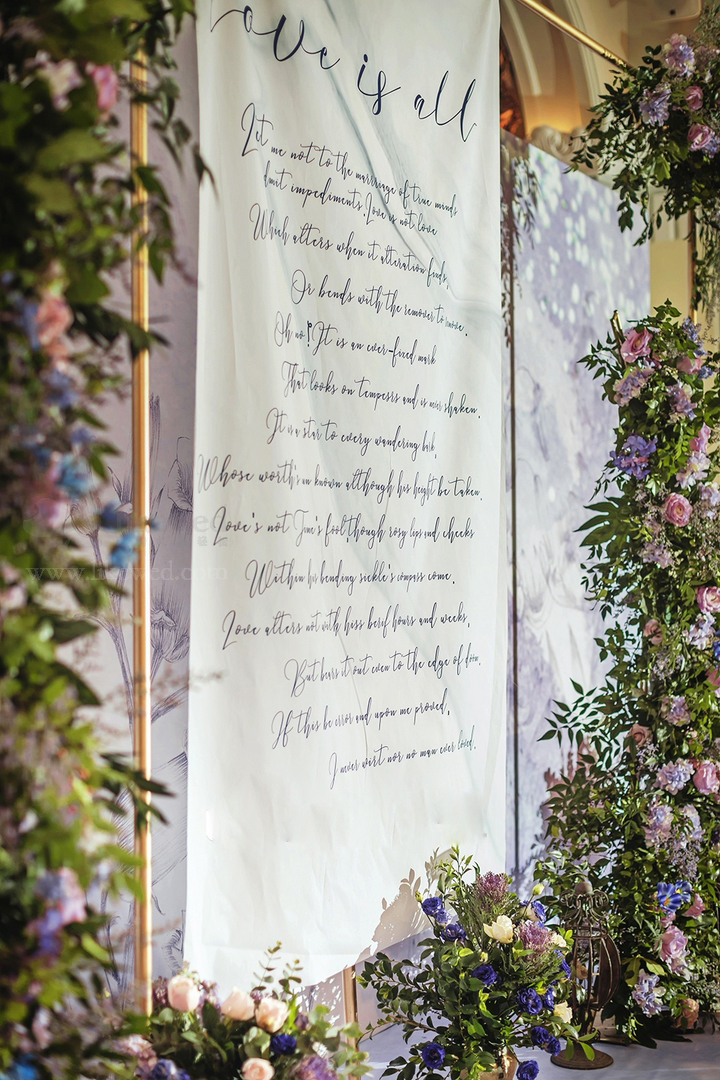 ove is all
Let me not to the marriage of true minds
dmit impediments. Love is not love
Which alters when it alteration finds,
Or bends with the remover to remove.
Oh no! It is an ever-fixed mark
That looks on tempests and is never shaken.
It is a star to every wandering bark,
Whose worth's un known although his height be taken.
Love's not Time's fool, though rosy lips and cheeks
Within his bending sickle's compass come.
Love alters not with hiss berif hours and weeks,
But bears it out even to the edge of doom.
If this be error and upon me proved,
I never writ nor no man ever loved.